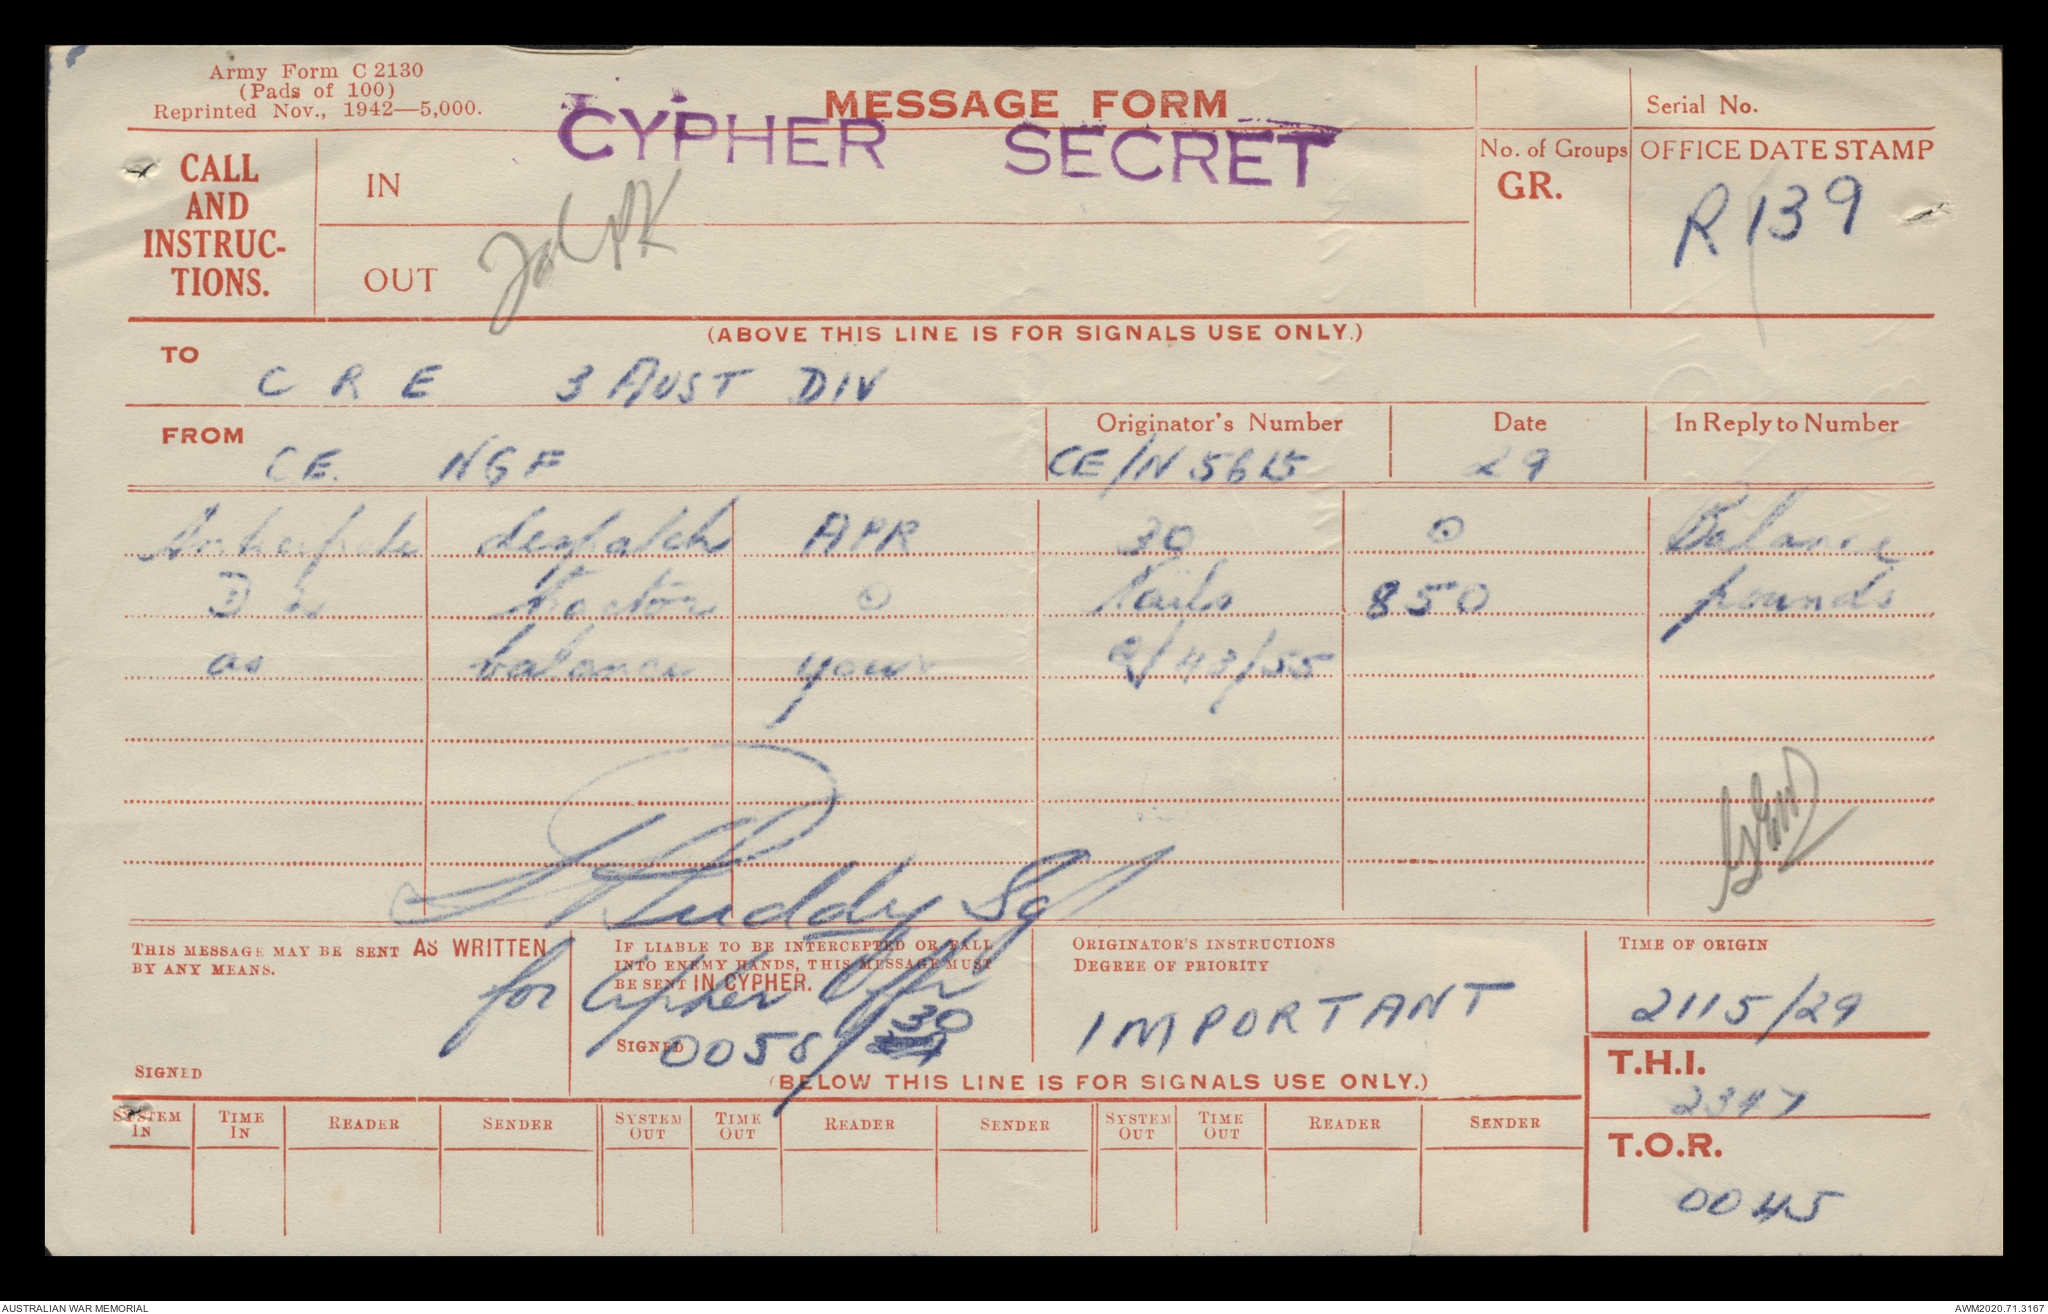 Army Form C 2130
(Pads of 100)
Reprinted Nov., 1942—5,000.
MESSAGE FORM
CYPHER SECRET
Serial No.
CALL
AND
INSTRUC-
TIONS.
IN
OUT
No. of Groups
GR.
OFFICE DATE STAMP
R 139
(ABOVE THIS LINE IS FOR SIGNALS USE ONLY.)
TO
C R E 3 AUST DIV
FROM
CE. NGF
Originator's Number
CE/N 5615
Date
29
In Reply to Number
Anticipate despatch APR 30 ⊙ Balance
tractor ⊙ Nails 850 pounds
as balance your Q/43/55
Ruddy Sgt
for Cipher Offr
0058/30
THIS MESSAGE MAY BE SENT AS WRITTEN
BY ANY MEANS.
SIGNED
IF LIABLE TO BE INTERCEPTED OR FALL
INTO ENEMY HANDS, THIS MESSAGE MUST
BE SENT IN CYPHER.
SIGNED
ORIGINATOR'S INSTRUCTIONS
DEGREE OF PRIORITY
IMPORTANT
TIME OF ORIGIN
2115/29
T.H.I.
2347
T.O.R.
0045
(BELOW THIS LINE IS FOR SIGNALS USE ONLY.)
SYSTEM IN TIME IN READER SENDER SYSTEM OUT TIME OUT READER SENDER SYSTEM OUT TIME OUT READER SENDER
AUSTRALIAN WAR MEMORIAL
AWM2020.71.3167